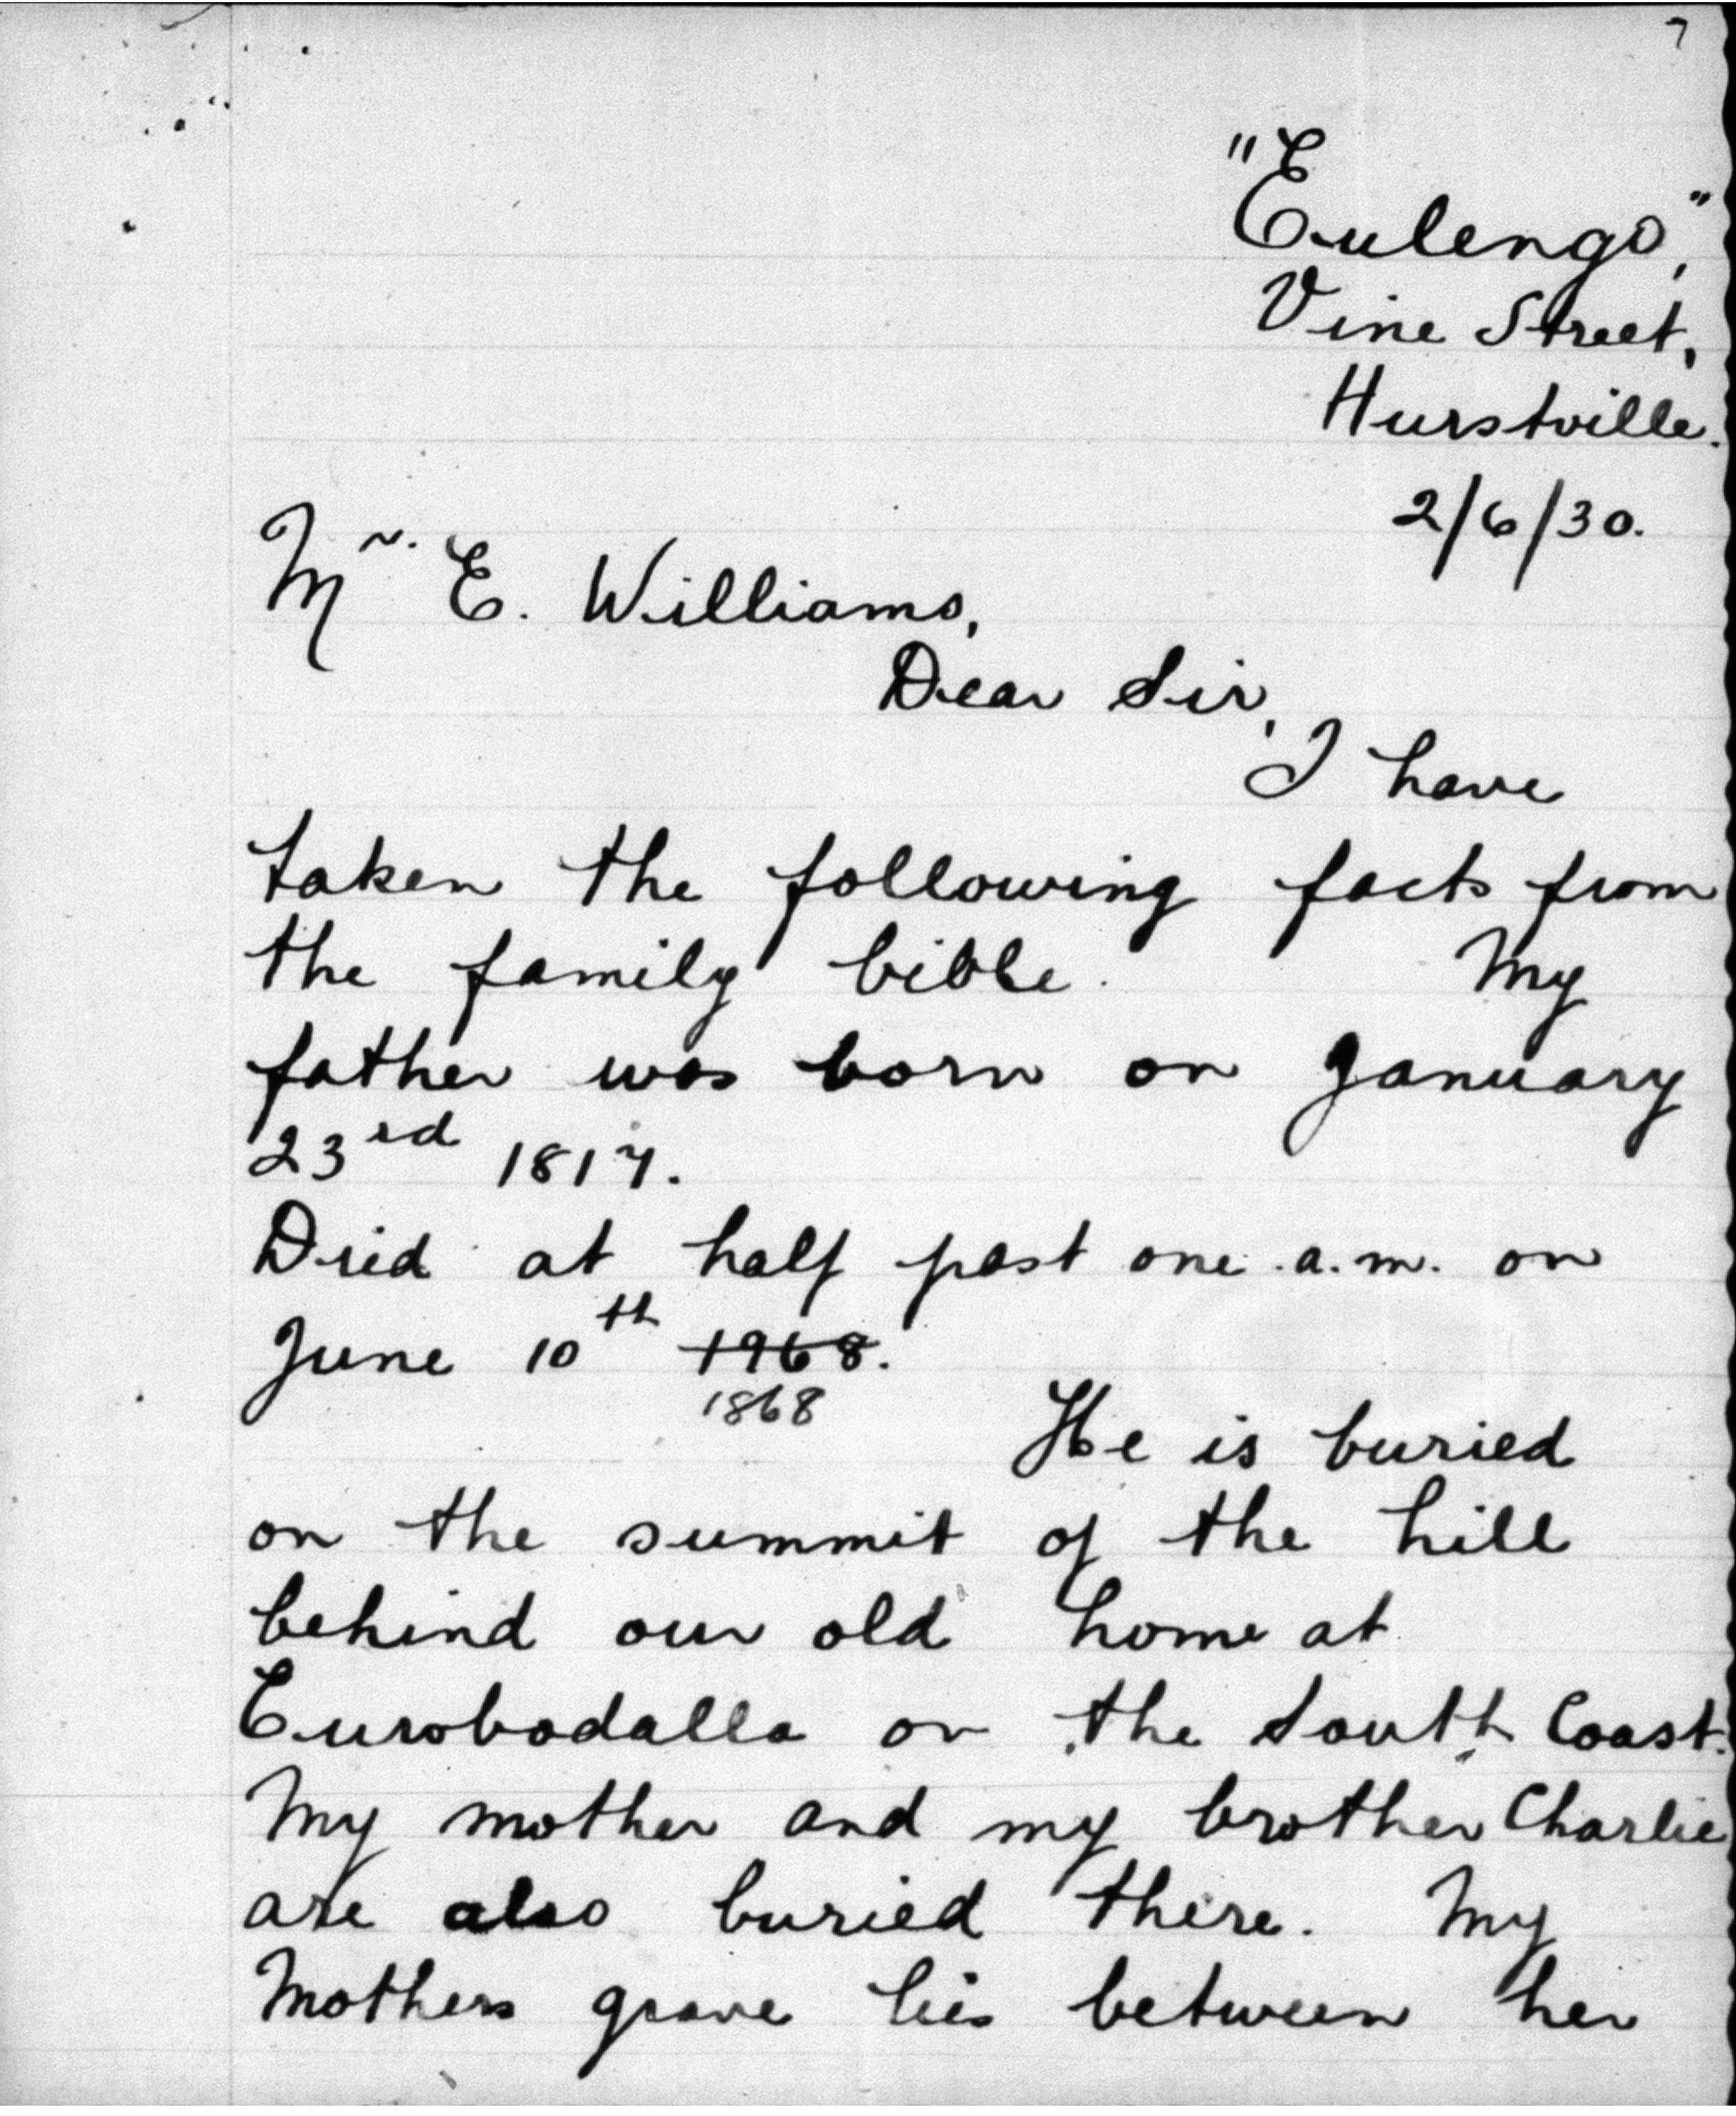 7
"Eulengo,"
Vine Street,
Hurstville.
2/6/30.
Mr. E. Williams,
Dear Sir,
I have
taken the following facts from
the family bible. My
father was born on January
23rd 1817.
Died at half past one a.m. on
June 10th 1968.
1868
He is buried
on the summit of the hill
behind our old home at
Eurobodalla on the South Coast.
My mother and my brother Charlie
are also buried there. My
Mothers grave lies between her